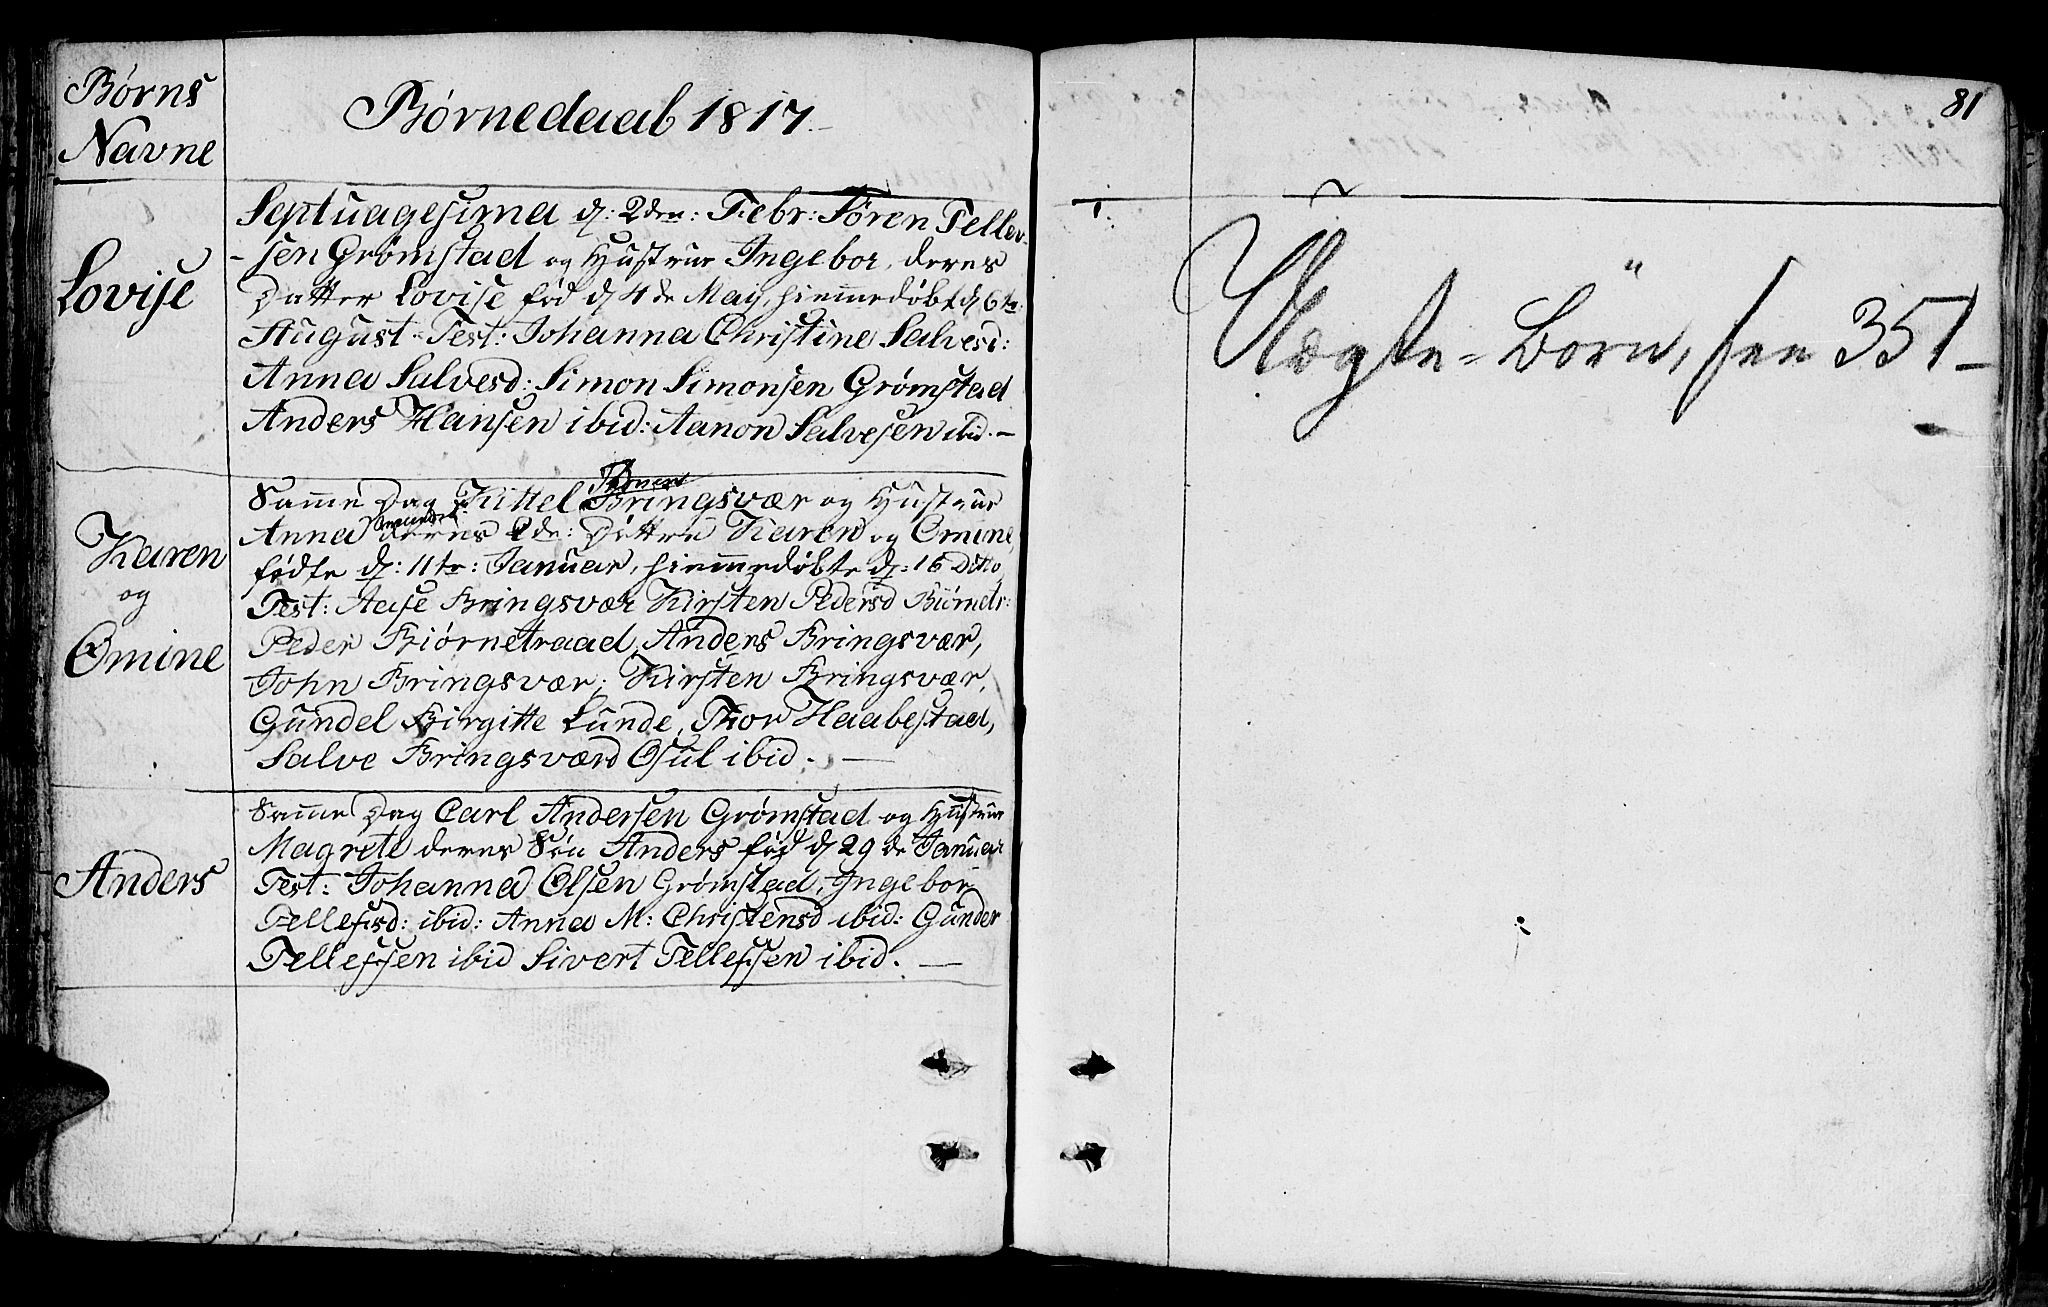 Børns
Navne
Børnedaab 1817.
Lovise
Septuagesima d: 2den: Febr: Søren Tellev-
-sen Grømstad og Hustrue Ingebor, deres
Datter Lovise fød d 4de May, hiemmedøbt d 6te
August - Test: Johanna Christine Salvesd:
Anna Salvesd: Simon Simonsen Grømstad
Anders Hansen ibid: Aanon Salvesen ibid. -
Karen
og
Omine
Samme Dag Kittel Bringsvær og Hustrue
Anna deres 2de: Døttre Karen og Omine,
fødte d: 11te: Januar, hiemmedøbte d: 16 Ditto,
Test: Aase Bringsvær Kirsten Pedersd
Peder Biørnetraad, Anders Bringsvær,
John Bringsvær, Kirsten Bringsvær,
Gundel Birgitte Lunde, Thor Haabestad,
Salve Bringsværd Osul ibid. -
Anders
Samme Dag Carl Andersen Grømstad og Hustrue
Magrete deres Søn Anders fød d 29de Januar
Test: Johanna Olsen Grømstad, Ingebor
Tellefsd: ibid: Anna M: Christensd ibid: Gunder
Tellefssen ibid Sivert Tellefssen ibid. -
81
Uægte-Börn, see 351-